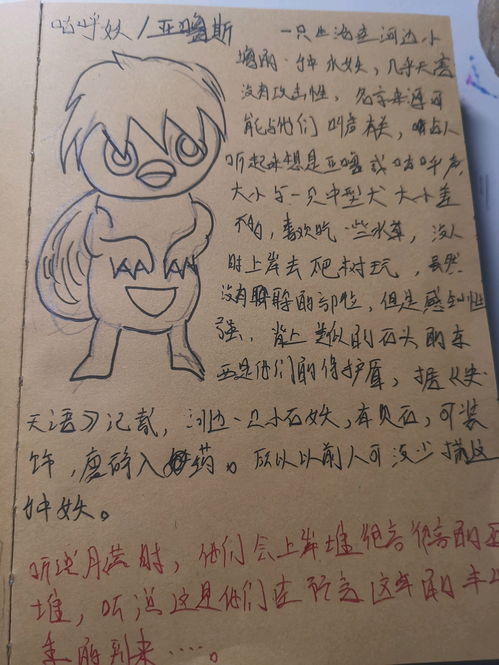 咕呼妖/亚噜斯
一只生活在河边小
塘的一种水妖，几乎无害
没有攻击性，名字来源可
能与他们叫声有关，噜人
听起来想是亚噜或咕呼声
大小与一只中型犬大小差
不的，喜欢吃一些水草，没人
时上岸去爬树玩，虽然
没有躲的部位，但是感知性
强，背上类似的石头的东
西是他们的保护盾，据《央
天语》记载，河边一只小石妖，有贝石，可装
饰，磨碎入药。所以以前人可没少捕这
种妖。
听说月满时，他们会上岸堆很高很高的
堆，听说这是他们在预言这年的丰
季的到来……。